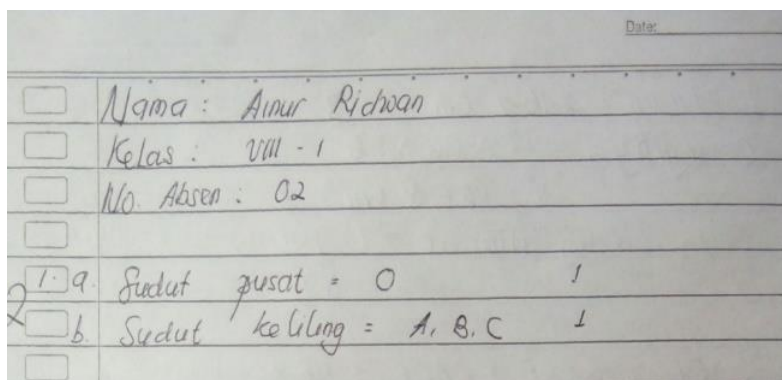 Date:
Nama : Ainur Ridwan
Kelas : VIII - 1
No. Absen : 02
1. a. Sudut pusat = O 1
2 b. Sudut keliling = A, B, C 1